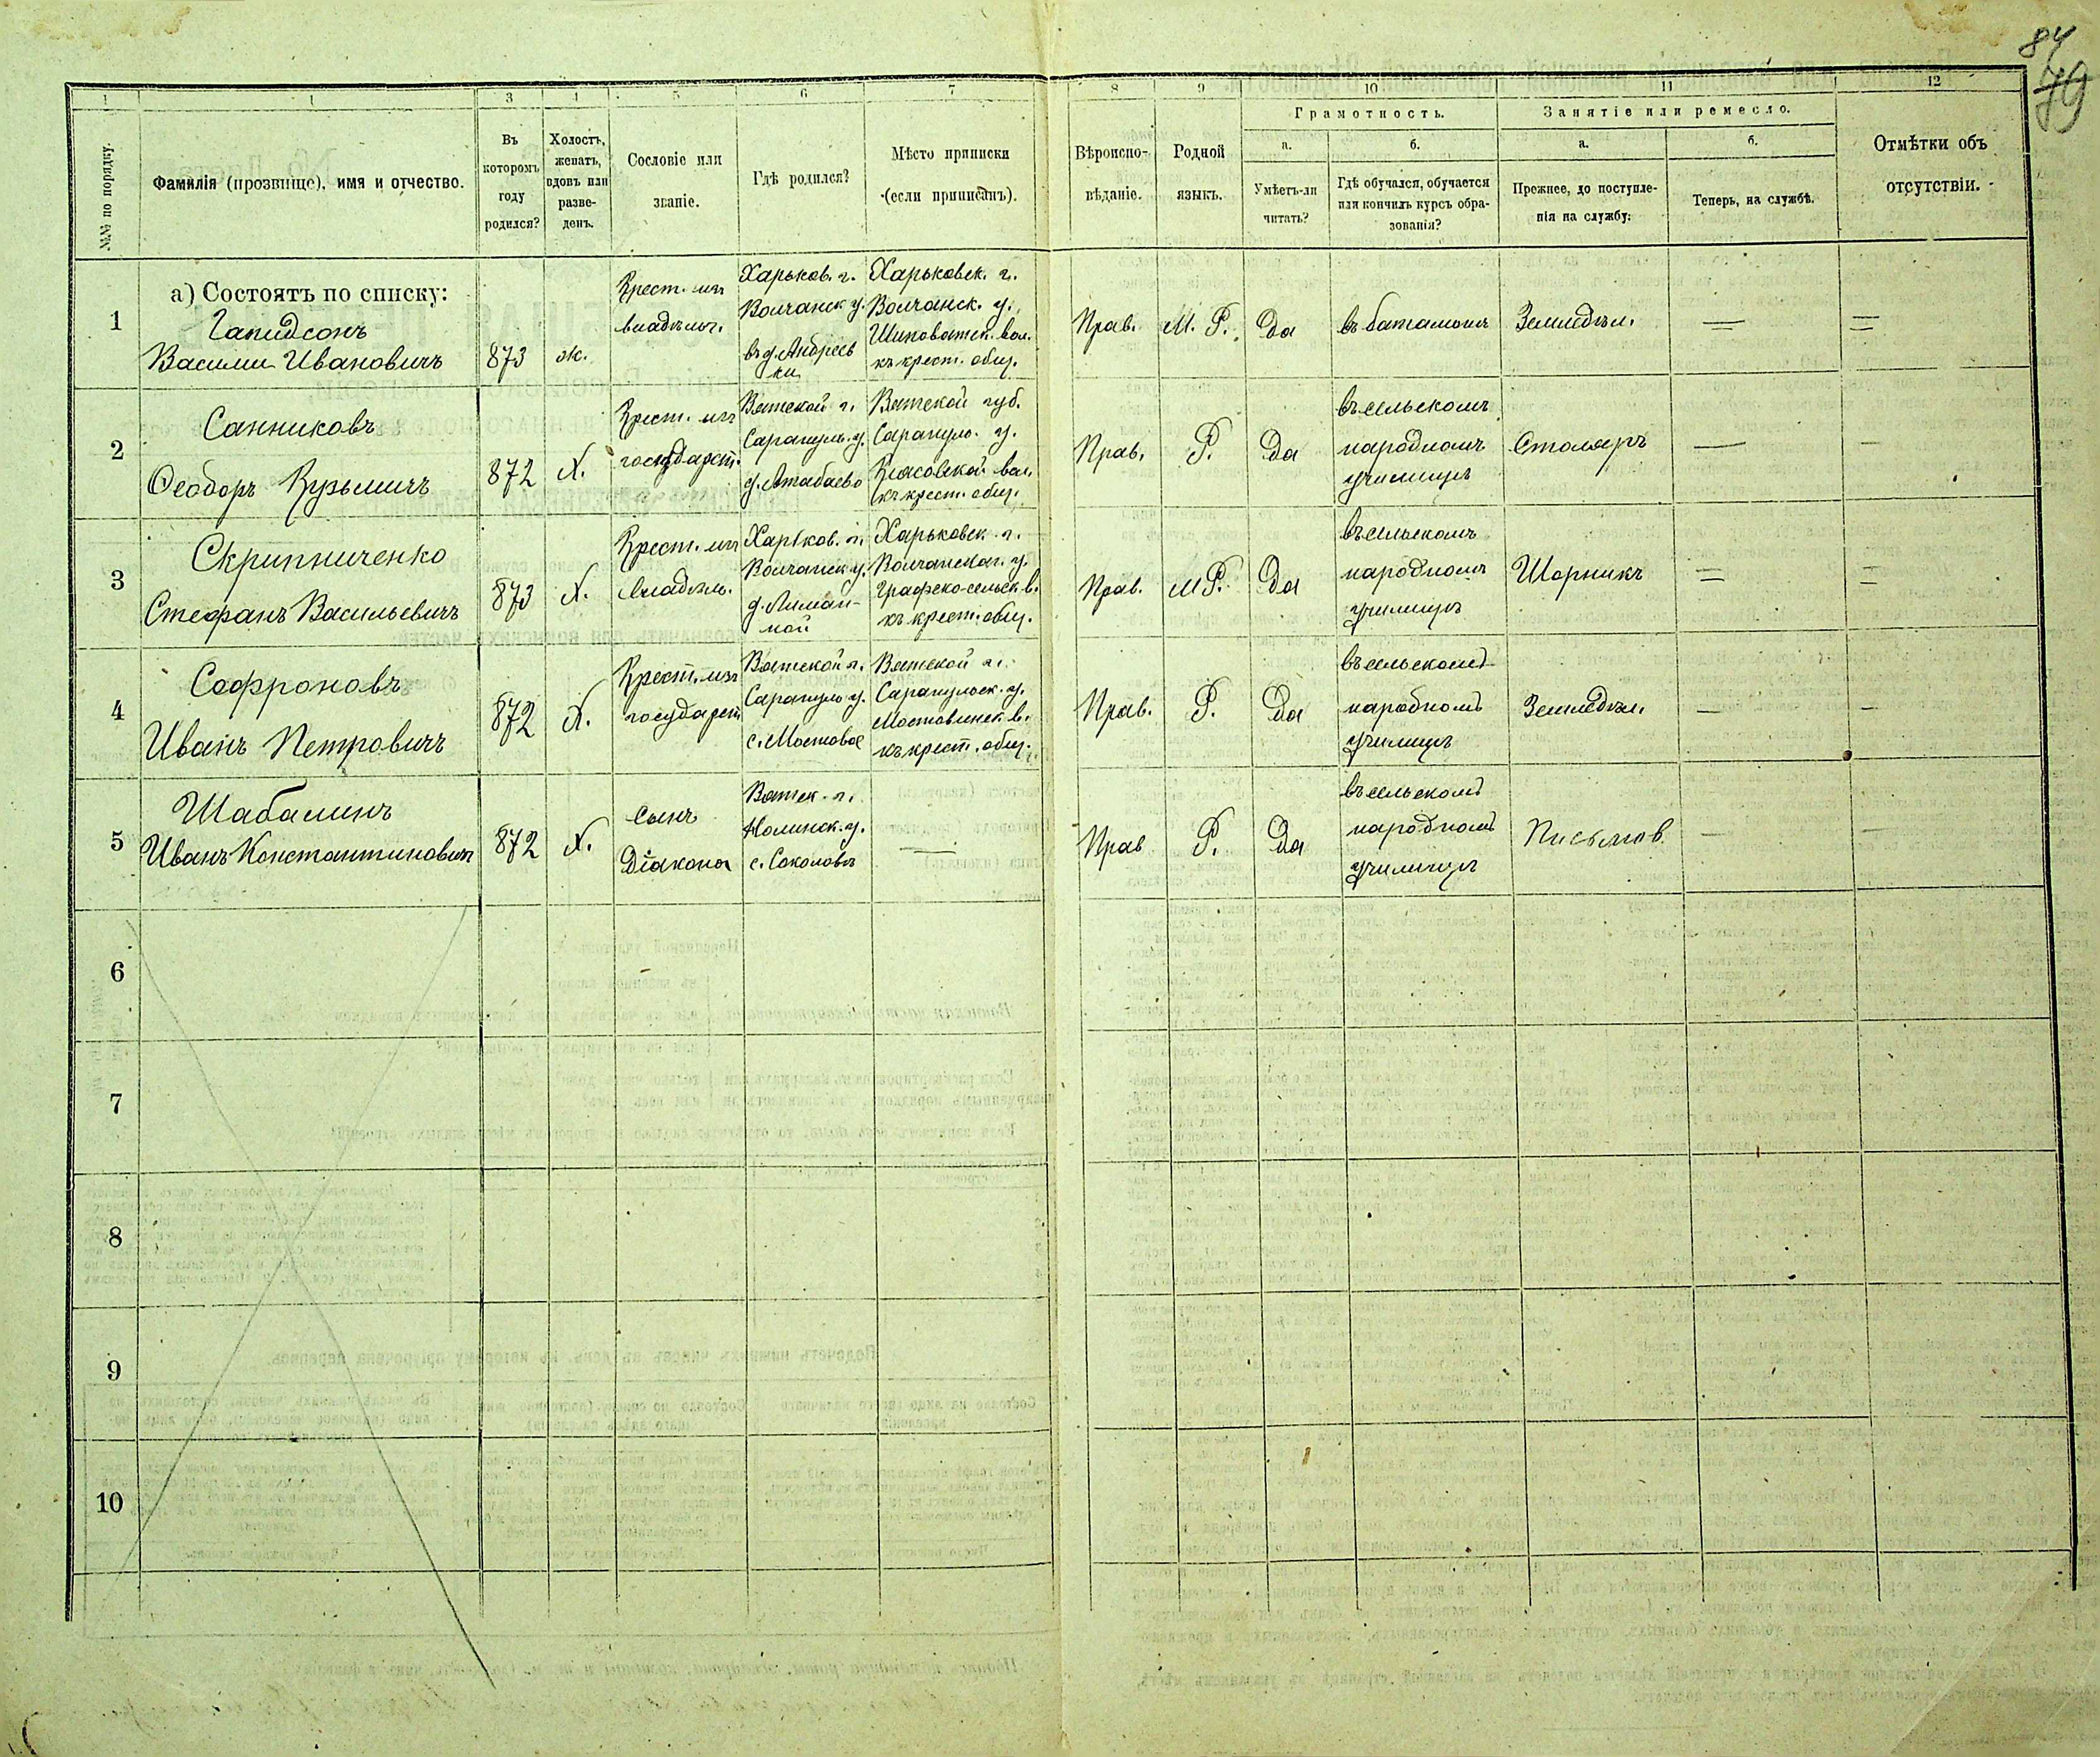 84
79
1 1 3 4 5 6 7 8 9 10 11 12
№№ по порядку.
Фамилія (прозвище), имя и отчество.
Въ которомъ году родился?
Холостъ, женатъ, вдовъ или разведенъ.
Сословіе или званіе.
Гдѣ родился?
Мѣсто приписки (если приписанъ).
Вѣроисповѣданіе.
Родной языкъ.
Грамотность.
а.
Умѣетъ-ли читать?
б.
Гдѣ обучался, обучается или кончилъ курсъ образованія?
Занятіе или ремесло.
а.
Прежнее, до поступленія на службу:
б.
Теперь, на службѣ.
Отмѣтки объ отсутствіи.
а) Состоятъ по списку:
1
Василии Ивановичъ
873
ж.
Крест. изъ
владѣльч.
Харьков. г.
Волчанск у.
въ д. Андреев
ки
Харьковск. г.
Волчанск. у.
Шиповатск. вол.
къ крест. общ.
Прав.
М. Р.
Да
въ баталионѣ
Земледѣл.
—
=
2
Санниковъ
Ѳеодоръ Кузьмичъ
872
Х.
Крест. изъ
государст.
Вятской г.
Сарапул. у.
д. Атабаево
Вятской губ.
Сарапул. у.
вол.
къ крест. общ.
Прав.
Р.
Да
въ сельскомъ
народномъ
училищѣ
Столяръ
—
—
3
Скрипниченко
Стефанъ Васильевичъ
873
Х.
Крест. изъ
владѣль.
Харьков. г.
Волчанск у.
д. Лиман-
ной
Харьковск. г.
Волчанског. у.
Графско-сельск. в.
къ крест. общ.
Прав.
М Р.
Да
въ сельскомъ
народномъ
училищѣ
Шорникъ
=
=
4
Софроновъ
Иванъ Петровичъ
872
Х.
Крест. изъ
государст
Вятской г.
Сарапул у.
с. Мостовое
Вятской г.
Сарапульск. у.
Мостовинск. в.
къ крест. общ.
Прав.
Р.
Да
въ сельскомъ
народномъ
училищѣ
Земледѣл.
—
—
5
Шабалинъ
Иванъ Константиновичъ
872
Х.
сынъ
Діакона
Вятск. г.
Нолинск. у.
с. Соколовѣ
—
Прав
Р.
Да
въ сельскомъ
народномъ
училищѣ
Письмов.
—
—
6
7
8
9
10